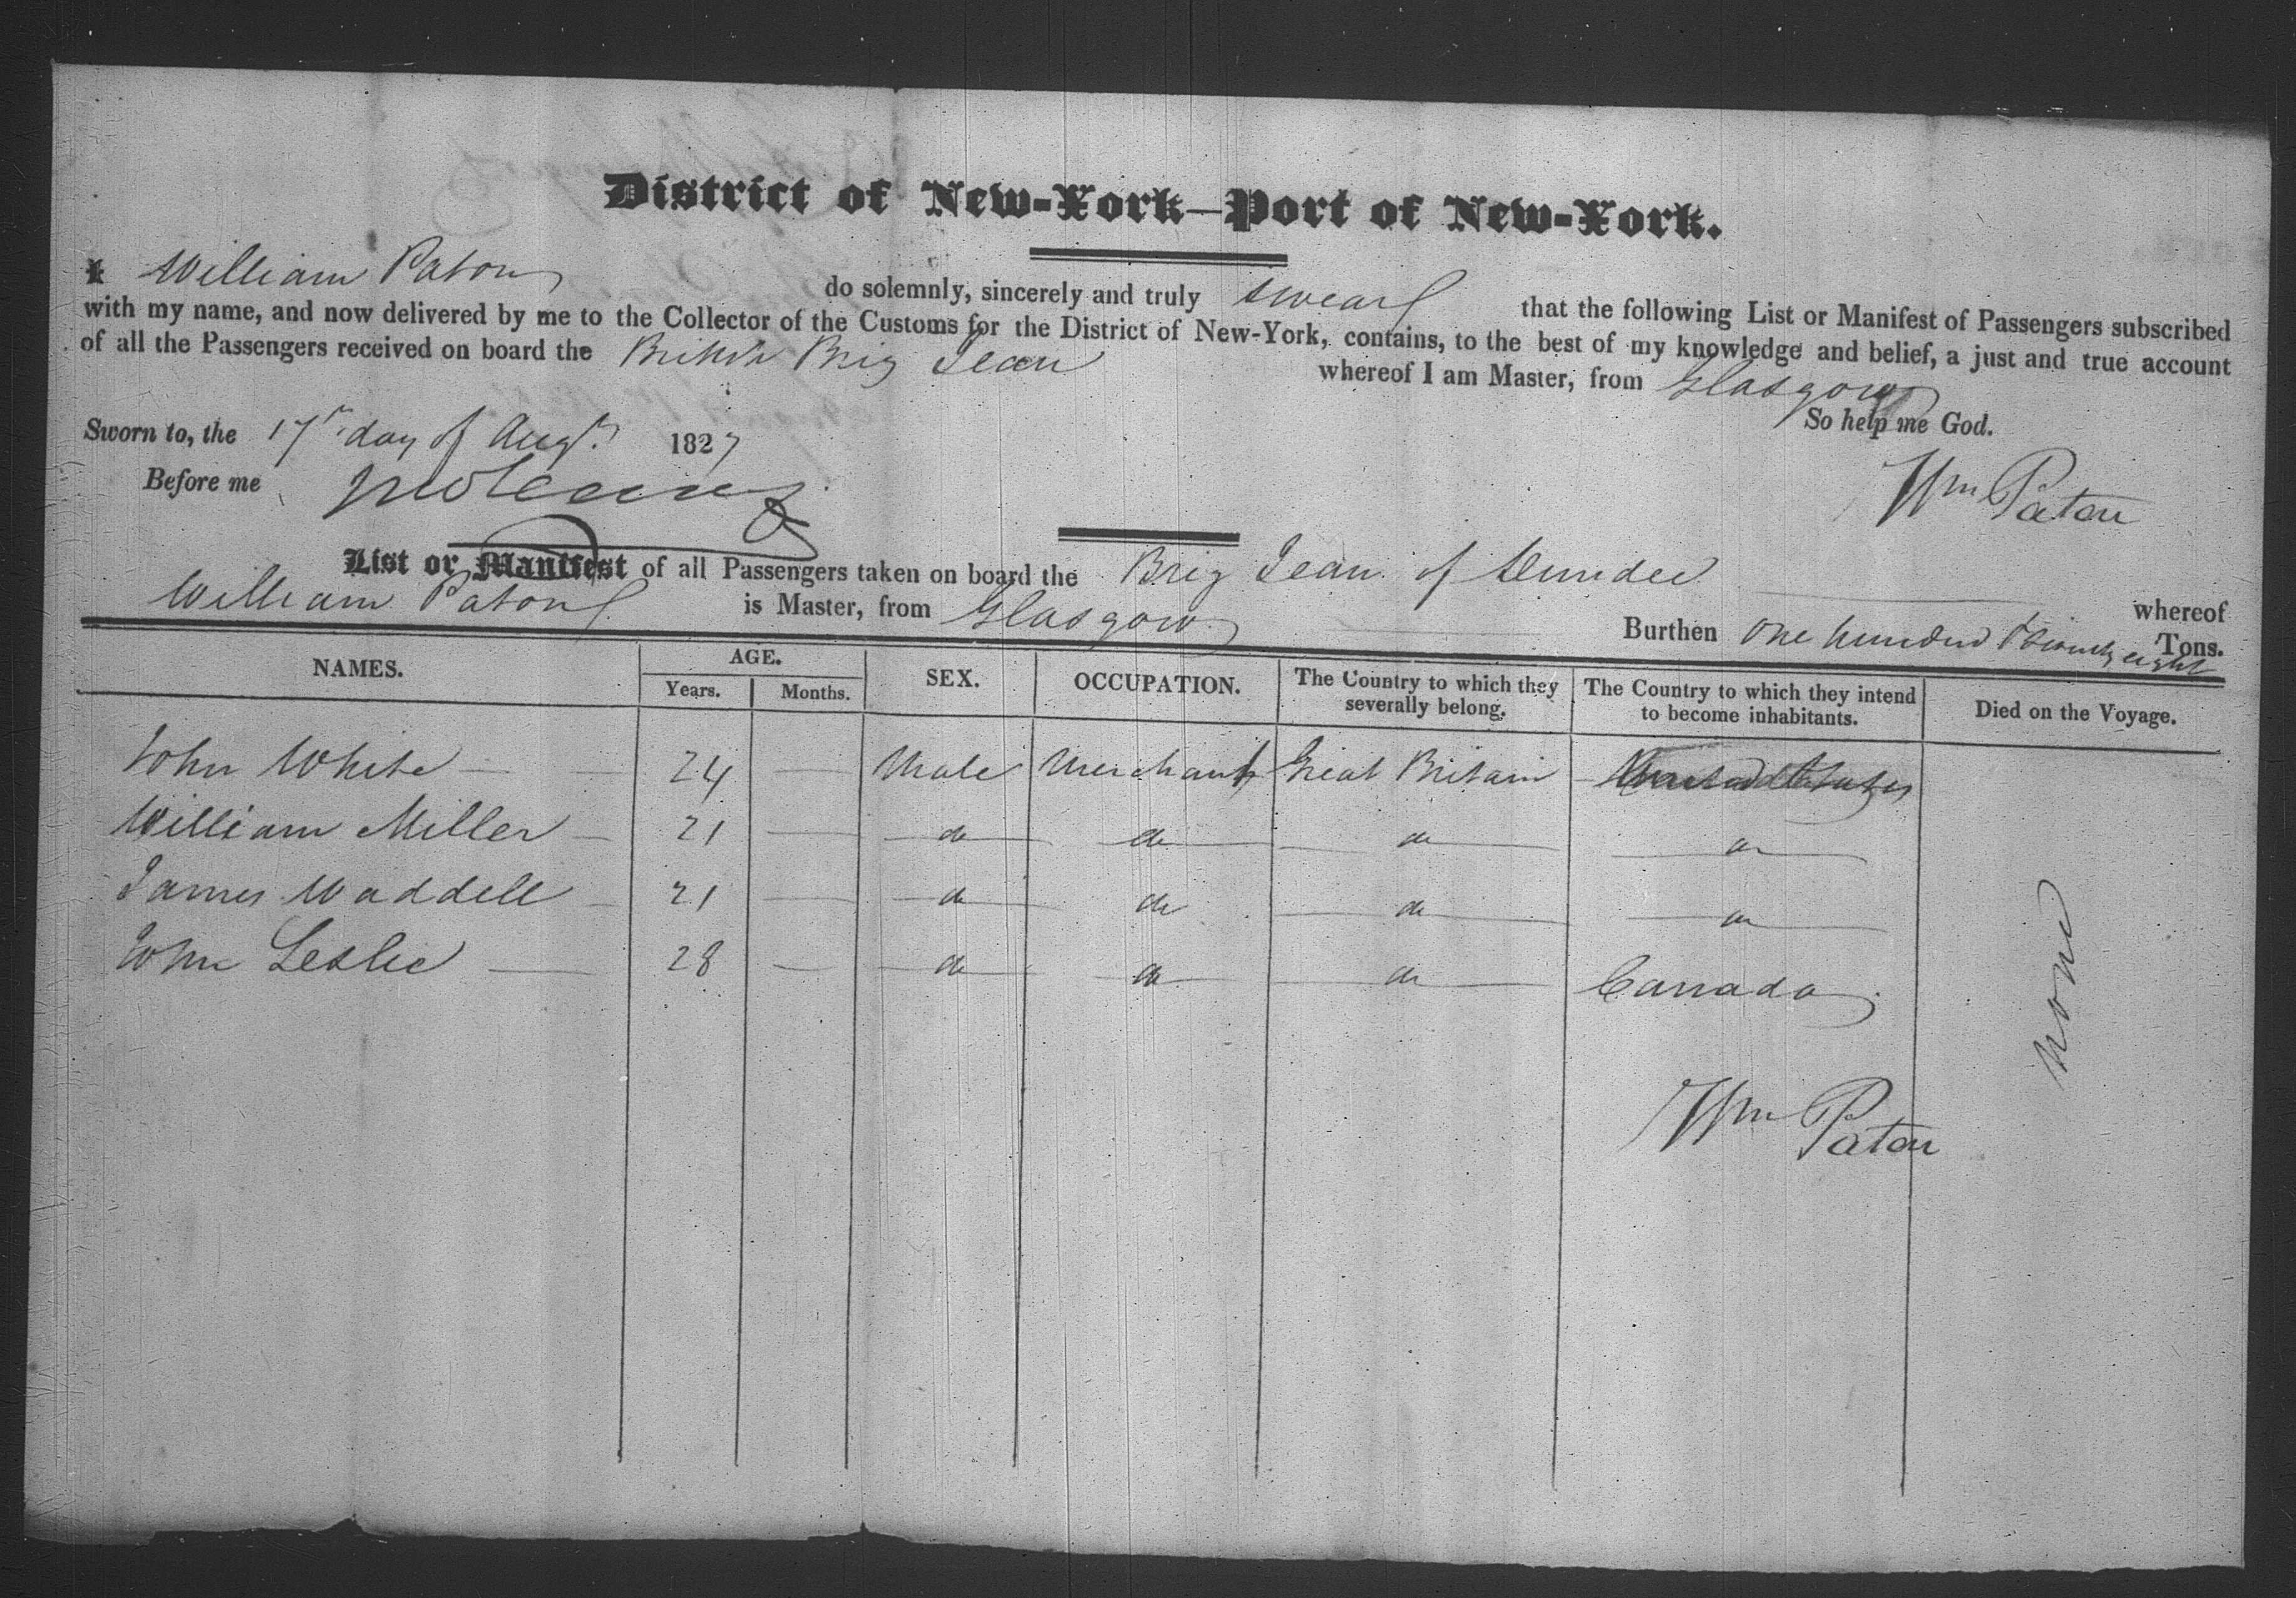 District of New-York—Port of New-York.
I William Paton do solemnly, sincerely and truly swear that the following List or Manifest of Passengers subscribed
with my name, and now delivered by me to the Collector of the Customs for the District of New-York, contains, to the best of my knowledge and belief, a just and true account
of all the Passengers received on board the British Brig Jean whereof I am Master, from Glasgow
So help me God.
Sworn to, the 17th day of Augt. 1827
Before me
Wm Paton
List or Manifest of all Passengers taken on board the Brig Jean of Dundee whereof
William Paton is Master, from Glasgow Burthen One hundred & seventy eight Tons.
NAMES. AGE. SEX. OCCUPATION. The Country to which they severally belong. The Country to which they intend to become inhabitants. Died on the Voyage.
Years. Months.
John White — 24 — Male Merchant Great Britain United States
William Miller — 21 — do do do do
James Waddell — 21 — do do do do
John Leslie — 28 — do do do Canada
None
Wm Paton